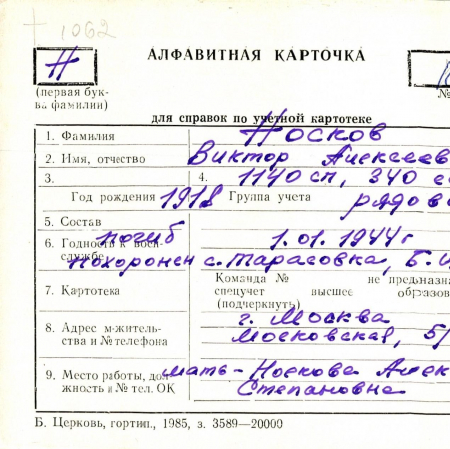 1062
АЛФАВИТНАЯ КАРТОЧКА
Н
(первая бук-
ва фамилии)
№
для справок по учетной картотеке
1. Фамилия Носков
2. Имя, отчество Виктор Алексеев
3. 4. 1140 сп, 340 с
Год рождения 1918 Группа учета рядов
5. Состав
погиб 1.01.1944г
6. Годность к воен-
службе
похоронен с. Тарасовка, Б.
7. Картотека Команда № не предназна
спецучет высшее образов
(подчеркнуть)
8. Адрес м-житель-
ства и № телефона
г. Москва
Московская, 5/
9. Место работы, дол-
жность и № тел. ОК
мать - Носкова Алек
Степановна
Б. Церковь, гортип., 1985, з. 3589—20000